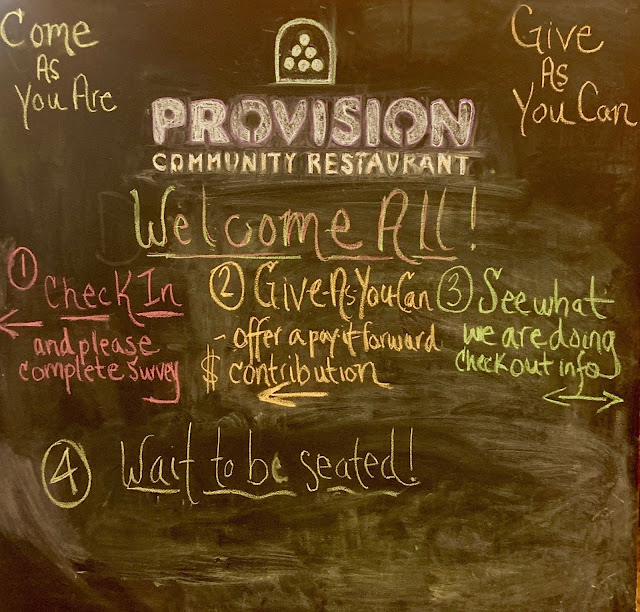 Come
As
You Are
Give
As
You Can
PROVISION
COMMUNITY RESTAURANT
Welcome All!
① Check In
and please
complete survey
② Give As You Can
- offer a pay it forward
$ contribution
③ See what
we are doing
Checkout info
④ Wait to be seated!